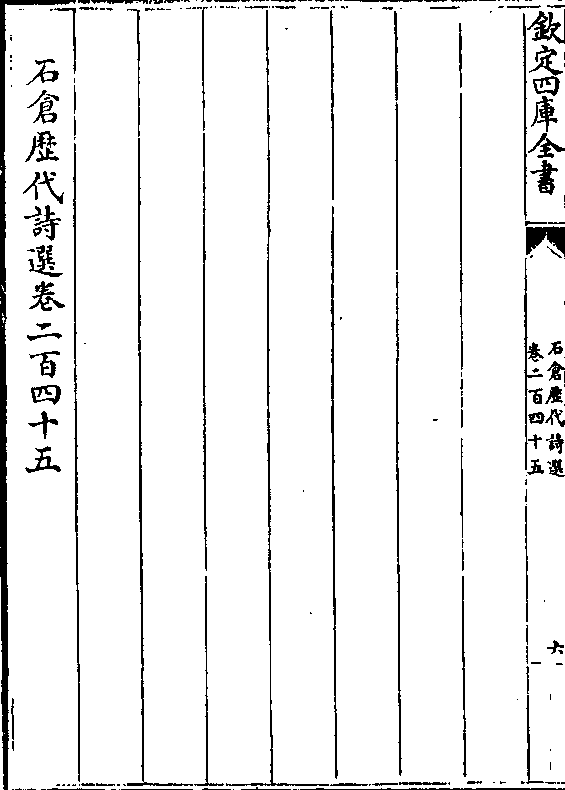 欽定四庫全書
石倉歷代詩選
卷二百四十五
六
石倉歷代詩選卷二百四十五